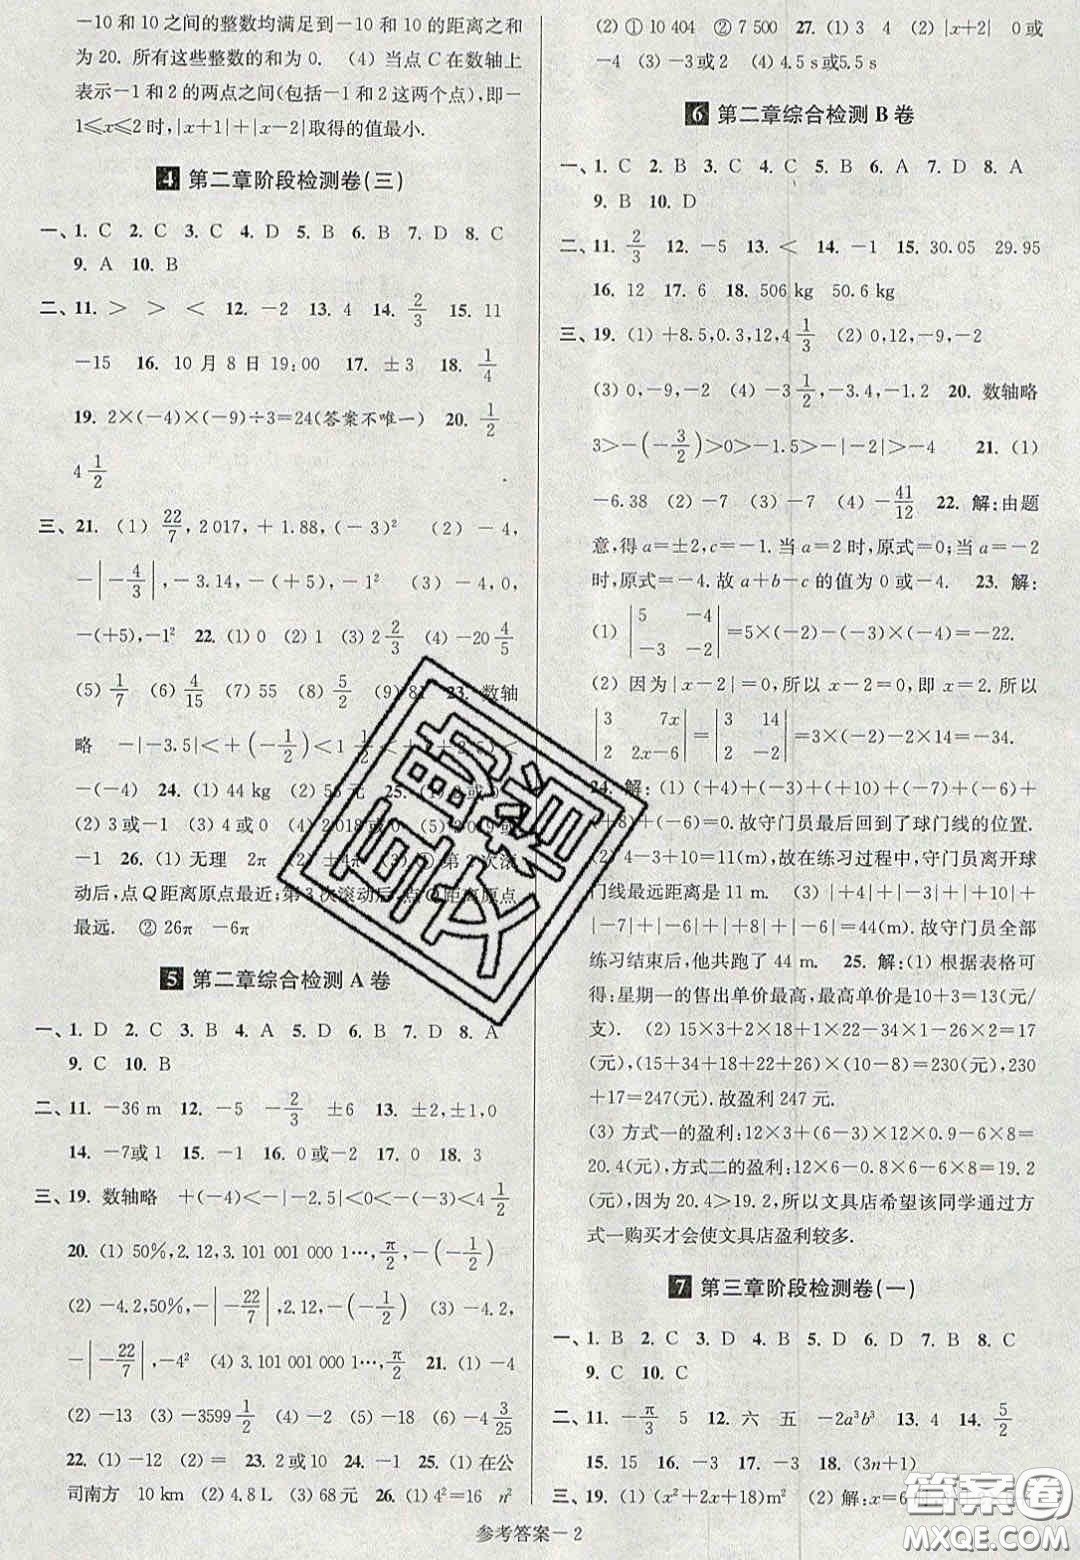 -10 和 10 之间的整数均满足到-10 和 10 的距离之和
为 20. 所有这些整数的和为 0. (4) 当点 C 在数轴上
表示-1 和 2 的两点之间(包括-1 和 2 这两个点),即-
1≤x≤2 时,|x+1|+|x-2|取得的值最小.
4 第二章阶段检测卷(三)
一、1. C 2. C 3. C 4. D 5. B 6. B 7. D 8. C
9. A 10. B
二、11. > > < 12. -2 13. 4 14. 2/3 15. 11
-15 16. 10 月 8 日 19:00 17. ±3 18. 1/4
19. 2×(-4)×(-9)÷3=24(答案不唯一) 20. 1/2
4 1/2
三、21. (1) 22/7, 2 017, +1.88, (-3)² (2) -4,
-|-4/3|, -3.14, -(+5), -1² (3) -4,0,
-(+5), -1² 22. (1) 0 (2) 1 (3) 2 2/3 (4) -20 4/5
(5) 1/7 (6) 4/15 (7) 55 (8) 5/2 (9) 81 23. 数轴
略 -|-3.5|<+(-1/2)<1 1/2<
-(-4) 24. (1) 44 kg (2) 56 元 25.
(2) 3 或-1 (3) 4 或 0 (4) 2 018 或 0 (5)
-1 26. (1) 无理 2π (2) ±4π (3) ① 第 2 次滚
动后,点 Q 距离原点最近;第 3 次滚动后,点 Q 距离原点
最远. ② 26π -6π
5 第二章综合检测 A 卷
一、1. D 2. C 3. B 4. A 5. D 6. B 7. D 8. A
9. C 10. B
二、11. -36 m 12. -5 -2/3 ±6 13. ±2,±1,0
14. -7 或 1 15. -1 16. 0 或-2 17. 0 18. 3
三、19. 数轴略 +(-4)<-|-2.5|<0<-(-3)<4 1/2
20. (1) 50%,2.12,3.101 001 000 1…,π/2,-(-1/2)
(2) -4.2,50%,-|-22/7|,2.12,-(-1/2) (3) -4.2,
-|-22/7|,-4² (4) 3.101 001 000 1…,π/2 21. (1) -4
(2) -13 (3) -3599 1/2 (4) -2 (5) -18 (6) -4 3/25
22. (1) -12 (2) = 23. 2 或 10 24. -1 25. (1) 在公
司南方 10 km (2) 4.8 L (3) 68 元 26. (1) 4²=16 n²
(2) ① 10 404 ② 7 500 27. (1) 3 4 (2) |x+2| 0 或
-4 (3) -3 或 2 (4) 4.5 s 或 5.5 s
6 第二章综合检测 B 卷
一、1. C 2. B 3. C 4. B 5. B 6. A 7. D 8. A
9. B 10. D
二、11. 2/3 12. -5 13. < 14. -1 15. 30.05 29.95
16. 12 17. 6 18. 506 kg 50.6 kg
三、19. (1) +8.5,0.3,12,4 1/3 (2) 0,12,-9,-2
(3) 0,-9,-2 (4) -3 1/2,-3.4,-1.2 20. 数轴略
3>-(-3/2)>0>-1.5>-|-2|>-4 21. (1)
-6.38 (2) -7 (3) -7 (4) -41/12 22. 解:由题
意,得 a=±2,c=-1. 当 a=2 时,原式=0;当 a=-2
时,原式=-4. 故 a+b-c 的值为 0 或-4. 23. 解:
(1) |5 -4; -3 -2|=5×(-2)-(-3)×(-4)=-22.
(2) 因为|x-2|=0,所以 x-2=0,即 x=2. 所以
|3 7x; 2 2x-6|=|3 14; 2 -2|=3×(-2)-2×14=-34.
24. 解:(1) (+4)+(-3)+(+10)+(-7)+(-6)+
(+8)+(-6)=0. 故守门员最后回到了球门线的位置.
(2) 4-3+10=11(m),故在练习过程中,守门员离开球
门线最远距离是 11 m. (3) |+4|+|-3|+|+10|
+|-7|+|-6|+|+8|+|-6|=44(m). 故守门员全部
练习结束后,他共跑了 44 m. 25. 解:(1) 根据表格可
得:星期一的售出单价最高,最高单价是10+3=13(元/
支). (2) 15×3+2×18+1×22-34×1-26×2=17
(元),(15+34+18+22+26)×(10-8)=230(元),230
+17=247(元). 故盈利 247 元.
(3) 方式一的盈利:12×3+(6-3)×12×0.9-6×8=
20.4(元),方式二的盈利:12×6-0.8×12×6=19.2
(元),因为 20.4>19.2,所以文具店希望该同学通过方
式一购买才会使文具店盈利较多.
7 第三章阶段检测卷(一)
一、1. B 2. C 3. D 4. B 5. D 6. D 7. B 8. C
9. C 10. C
二、11. -π/3 5 12. 六 五 -2a³b³ 13. 4 14. 5/2
15. 15 16. -3 17. -3 18. (3n+1)
三、19. (1) (x²+2x+18)m² (2) 解:x=6
参考答案-2
答案圈
MXQE.COM